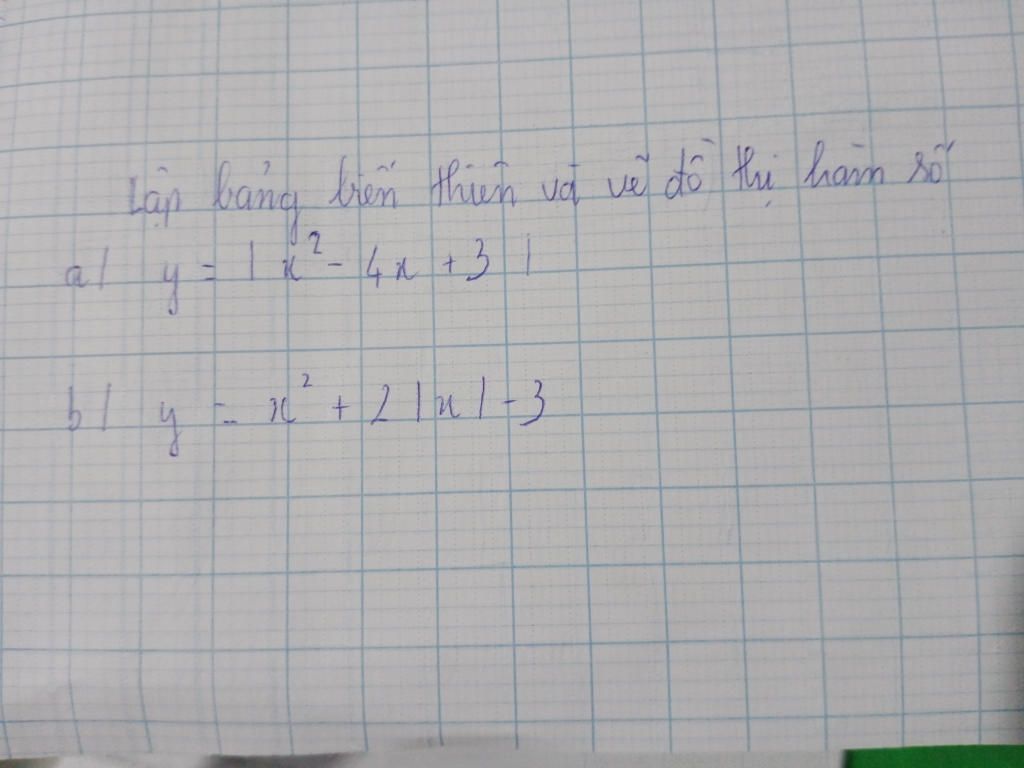 Lập bảng biến thiên và vẽ đồ thị hàm số
a/ y = |x² - 4x + 3|
b/ y = x² + 2|x| - 3